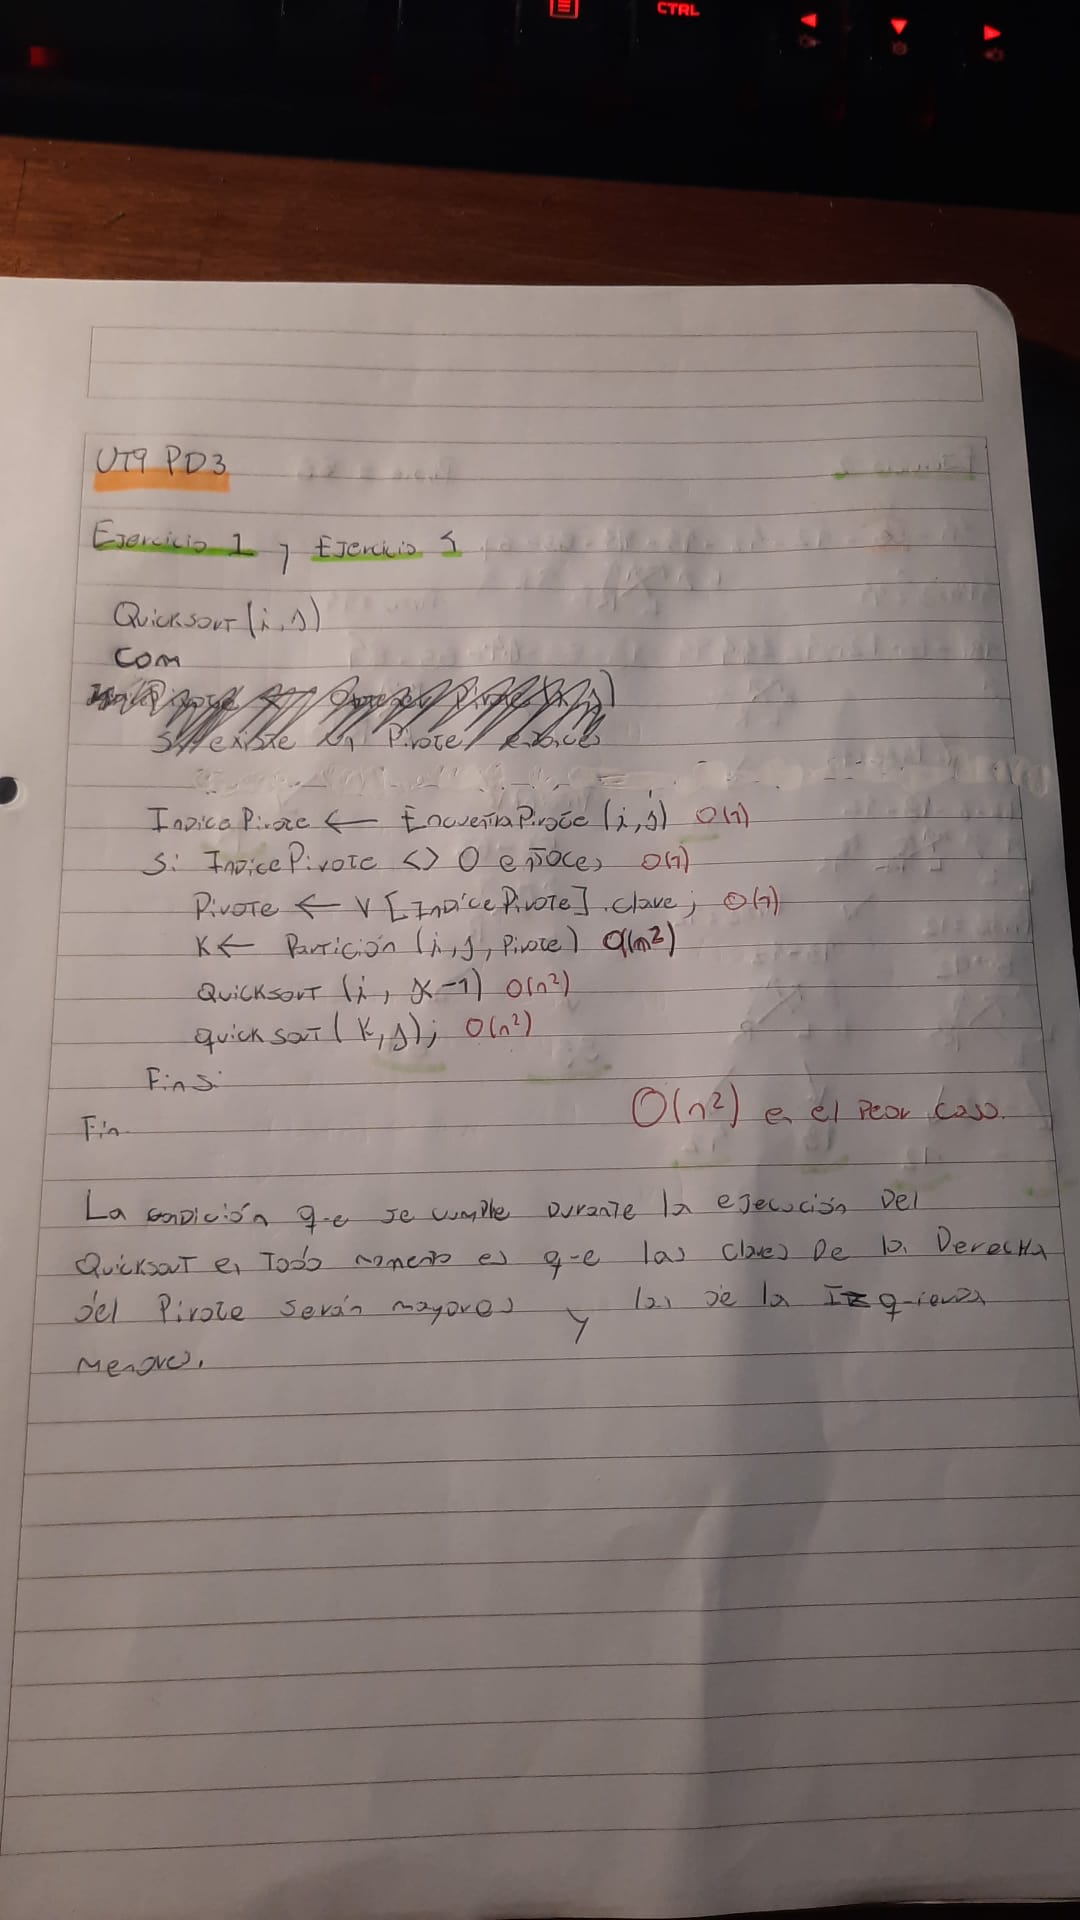 CTRL
UT9 PD3
Ejercicio 1 y Ejercicio 5
Quicksort (i, j)
com
Si existe un Pivote entonces
IndicePivote ← EncuentraPivote (i, j) O(1)
Si IndicePivote <> 0 entonces O(1)
Pivote ← V [IndicePivote].clave; O(1)
K ← Partición (i, j, Pivote) O(n²)
Quicksort (i, K-1) O(n²)
quicksort (K, j); O(n²)
FinSi
Fin.
O(n²) en el Peor caso.
La condición que se cumple Durante la ejecución Del
Quicksort en Todo momento es que las claves De la Derecha
del Pivote serán mayores y las de la Izquierda
menores.